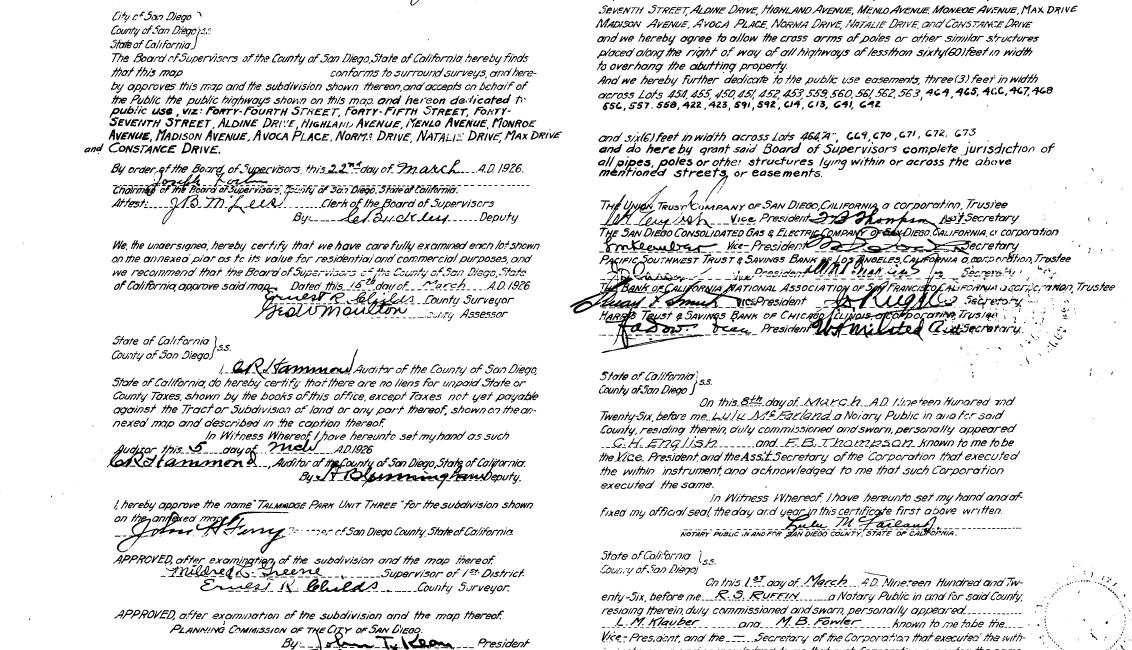 City of San Diego
County of San Diego } s.s.
State of California
The Board of Supervisors of the County of San Diego, State of California hereby finds
that this map conforms to surround surveys, and here-
by approves this map and the subdivision shown thereon, and accepts on behalf of
the Public the public highways shown on this map. and hereon dedicated to
public use, viz: FORTY-FOURTH STREET, FORTY-FIFTH STREET, FORTY-
SEVENTH STREET, ALDINE DRIVE, HIGHLAND AVENUE, MENLO AVENUE, MONROE
AVENUE, MADISON AVENUE, AVOCA PLACE, NORMA DRIVE, NATALIE DRIVE, MAX DRIVE
and CONSTANCE DRIVE.
By order of the Board of Supervisors, this 22nd day of March A.D. 1926.
Chairman of the Board of Supervisors, County of San Diego, State of California.
Attest: J.B. McLees Clerk of the Board of Supervisors
By: Buckley Deputy
We, the undersigned, hereby certify that we have carefully examined each lot shown
on the annexed plat as to its value for residential and commercial purposes, and
we recommend that the Board of Supervisors of the County of San Diego, State
of California, approve said map. Dated this 15th day of March A.D. 1926
Ernest R. Childs County Surveyor
Geo. W. Moulton County Assessor
State of California
County of San Diego } s.s.
I, C.R. Hammond Auditor of the County of San Diego,
State of California, do hereby certify that there are no liens for unpaid State or
County Taxes, shown by the books of this office, except Taxes not yet payable
against the Tract or Subdivision of land or any part thereof, shown on the an-
nexed map and described in the caption thereof.
In Witness Whereof, I have hereunto set my hand as such
Auditor this 5 day of A.D. 1926
C.R. Hammond Auditor of the County of San Diego, State of California.
By Deputy.
I, hereby approve the name "TALMADGE PARK UNIT THREE" for the subdivision shown
on the annexed map.
John H. Ferry of San Diego County, State of California.
APPROVED, after examination of the subdivision and the map thereof.
Mildred L. Greene Supervisor of 1st District.
Ernest R. Childs. County Surveyor.
APPROVED, after examination of the subdivision and the map thereof.
PLANNING COMMISSION OF THE CITY OF SAN DIEGO.
By John President
SEVENTH STREET, ALDINE DRIVE, HIGHLAND AVENUE, MENLO AVENUE, MONROE AVENUE, MAX DRIVE
MADISON AVENUE, AVOCA PLACE, NORMA DRIVE, NATALIE DRIVE, and CONSTANCE DRIVE
and we hereby agree to allow the cross arms of poles or other similar structures
placed along the right of way of all highways of less than sixty (60) feet in width
to overhang the abutting property.
And we hereby further dedicate to the public use easements, three (3) feet in width
across Lots 454, 455, 450, 451, 452, 453, 559, 560, 561, 562, 563, 464, 465, 466, 467, 468
556, 557, 558, 422, 423, 591, 592, 614, 613, 641, 642
and six (6) feet in width across Lots 464"A", 669, 670, 671, 672, 673
and do hereby grant said Board of Supervisors complete jurisdiction of
all pipes, poles or other structures lying within or across the above
mentioned streets, or easements.
THE UNION TRUST COMPANY OF SAN DIEGO, CALIFORNIA, a corporation, Trustee
Vice President F.B. Thompson Ass't Secretary
THE SAN DIEGO CONSOLIDATED GAS & ELECTRIC COMPANY OF SAN DIEGO, CALIFORNIA, a corporation
Vice-President Secretary
PACIFIC SOUTHWEST TRUST & SAVINGS BANK OF LOS ANGELES, CALIFORNIA a corporation, Trustee
Vice President Secretary
THE BANK OF CALIFORNIA NATIONAL ASSOCIATION OF SAN FRANCISCO CALIFORNIA a corporation, Trustee
Vice President Secretary
HARRIS TRUST & SAVINGS BANK OF CHICAGO, ILLINOIS, a corporation, Trustee
President Secretary.
State of California
County of San Diego } s.s.
On this 8th day of March A.D. Nineteen Hundred and
Twenty-Six, before me Lulu McFarland a Notary Public in and for said
County, residing therein, duly commissioned and sworn, personally appeared
C.H. English and F.B. Thompson known to me to be
the Vice, President, and the Ass't Secretary of the Corporation that executed
the within instrument, and acknowledged to me that such Corporation
executed the same.
In Witness Whereof, I have hereunto set my hand and af-
fixed my official seal, the day and year in this certificate first above written.
Lulu McFarland
NOTARY PUBLIC IN AND FOR SAN DIEGO COUNTY, STATE OF CALIFORNIA.
State of California
County of San Diego } s.s.
On this 1st day of March A.D. Nineteen Hundred and Tw-
enty-Six, before me R.S. RUFFIN a Notary Public in and for said County,
residing therein, duly commissioned and sworn, personally appeared
L.M. Klauber and M.B. Fowler known to me to be the
Vice-President, and the — Secretary of the Corporation that executed the with-